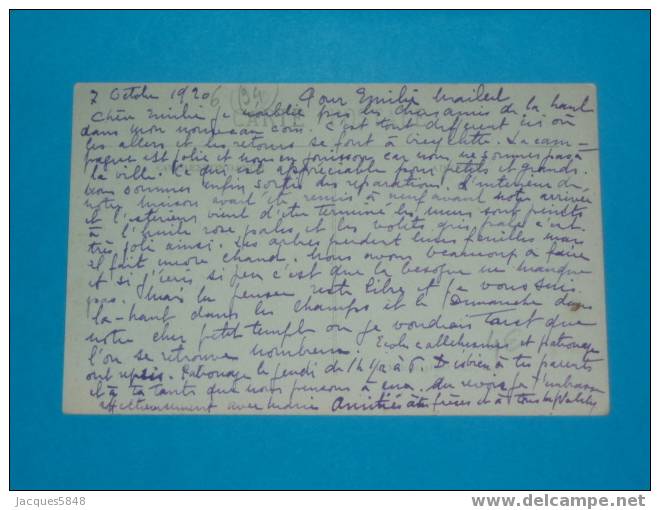 7 Octobre 1920 6 (94) Pour Emilie
Chère Emilie je n'oublie pas les chers amis de là haut
dans mon nouveau coin. C'est tout différent ici où
les allers et les retours se font à bicyclette. La cam-
pagne est jolie et nous en jouissons car nous ne sommes pas à
la ville. Ce qui est appréciable pour petits et grands.
Nous sommes enfin sortis des réparations. L'intérieur de
notre maison avait été remis à neuf avant notre arrivée
et l'extérieur vient d'être terminé les murs sont peints
à l'huile rose pâles et les volets gris pâle c'est
très joli ainsi. Les arbres perdent leurs feuilles mais
il fait encore chaud. Nous avons beaucoup à faire
et si j'écris si peu c'est que la besogne ne manque
pas. Mais la pensée reste libre et je vous suis
là-haut dans les champs et le Dimanche dans
notre cher petit temple où je voudrais tant que
l'on se retrouve nombreux. Ecole catéchismes et patronage
ont repris. Patronage le jeudi de 1h 1/2 à 6. Dis bien à tes parents
et à ta tante que nous pensons à eux. Au revoir je t'embrasse
affectueusement avec Marie Amitiés à tes frères et à tous les
Jacques5848
delcampe.net